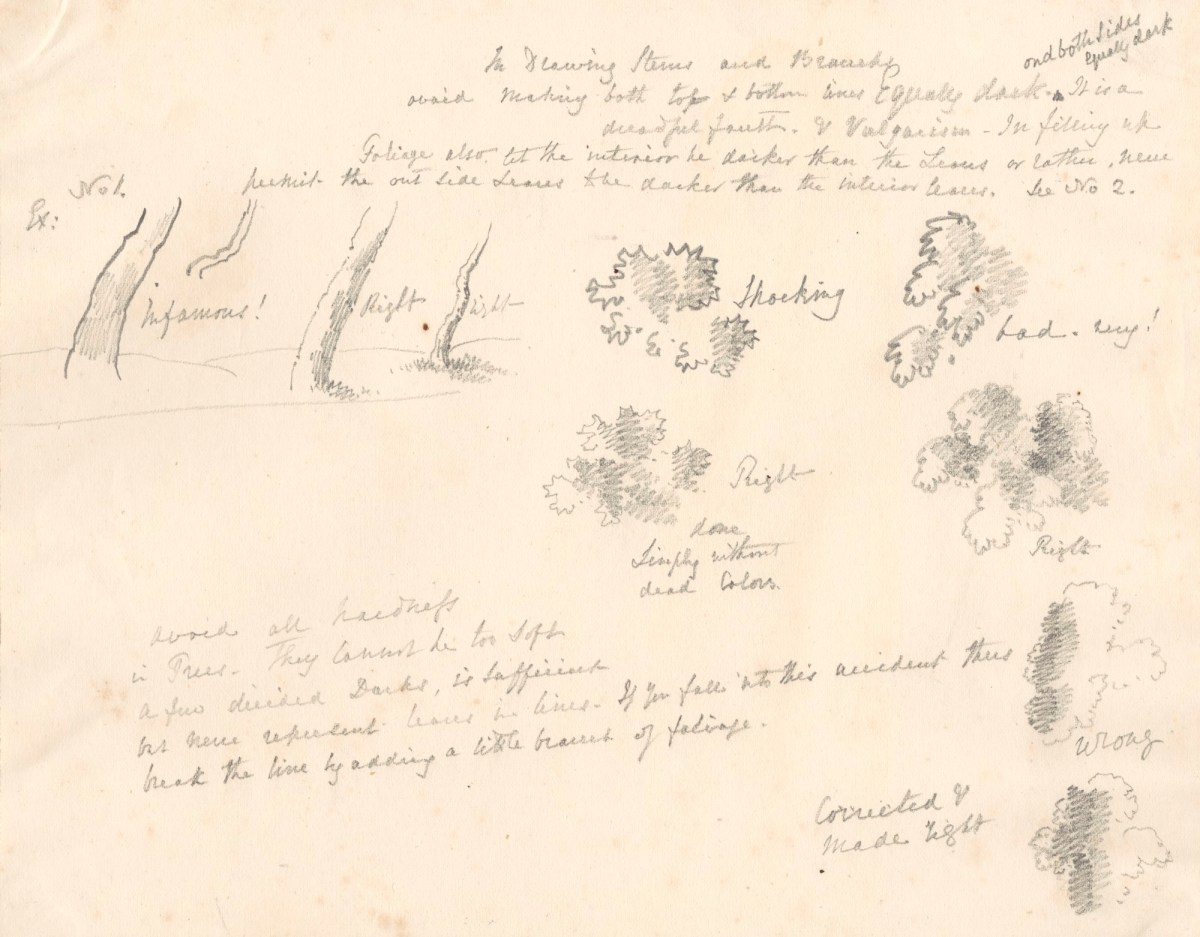 In Drawing Stems and Branches
and both sides
equally dark
avoid making both top & bottom lines Equally dark. It is a
dreadful fault. & Vulgarism - In filling up
Foliage also, let the interior be darker than the Leaves or rather, never
permit the out side Leaves to be darker than the interior leaves. See No 2.
No 1.
Ex:
Infamous!
Right
right
Shocking
bad. very!
Right
done
Simply without
dead Colors.
Right
avoid all hardness
in Trees. They Cannot be too Soft
a few decided Darks, is Sufficient
but never represent leaves in lines. If you fall into this accident thus
break the line by adding a little branch of foliage.
Wrong
Corrected &
Made right